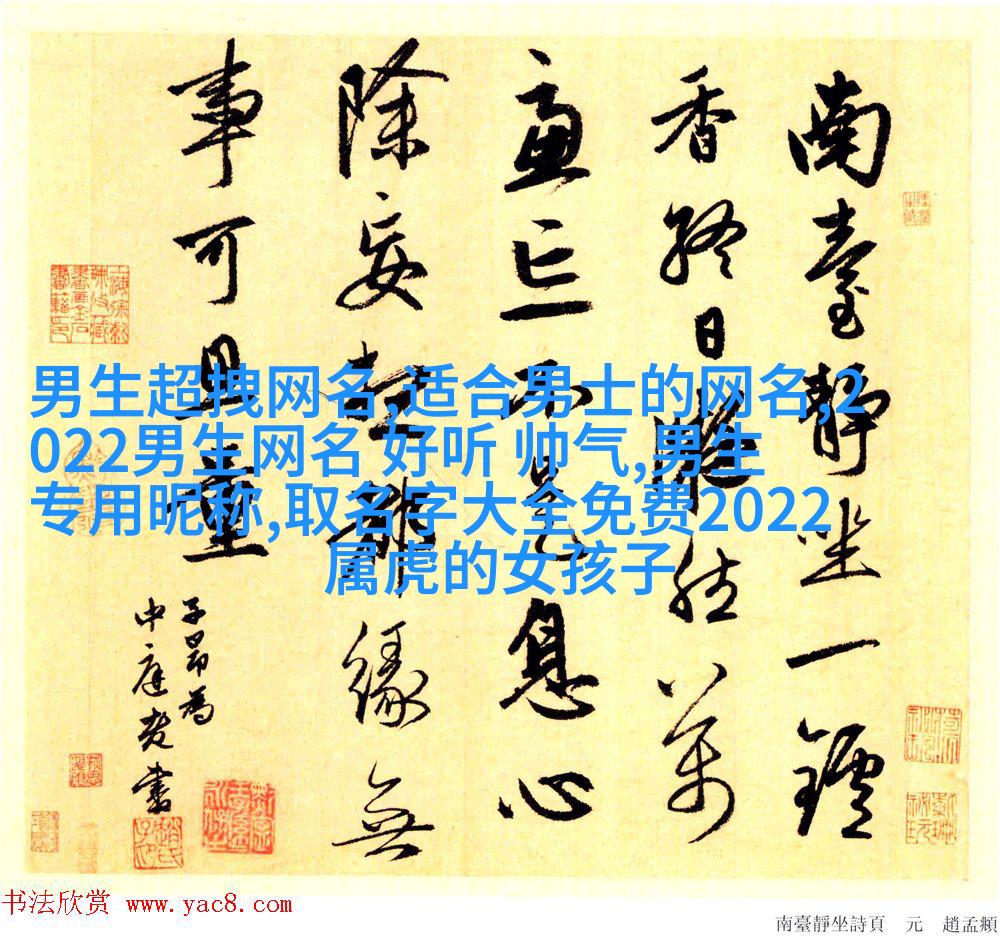 南臺靜坐一鑪
香終日凝然萬
慮亡不是息心
除妄想都緣無
事可思量
子昂為
中庭老書
男生超拽网名,适合男士的网名,2
022男生网名 好听 帅气,男生
专用昵称,取名字大全免费2022
属虎的女孩子
书法欣赏 www.yac8.com
南臺靜坐詩頁 元 趙孟頫